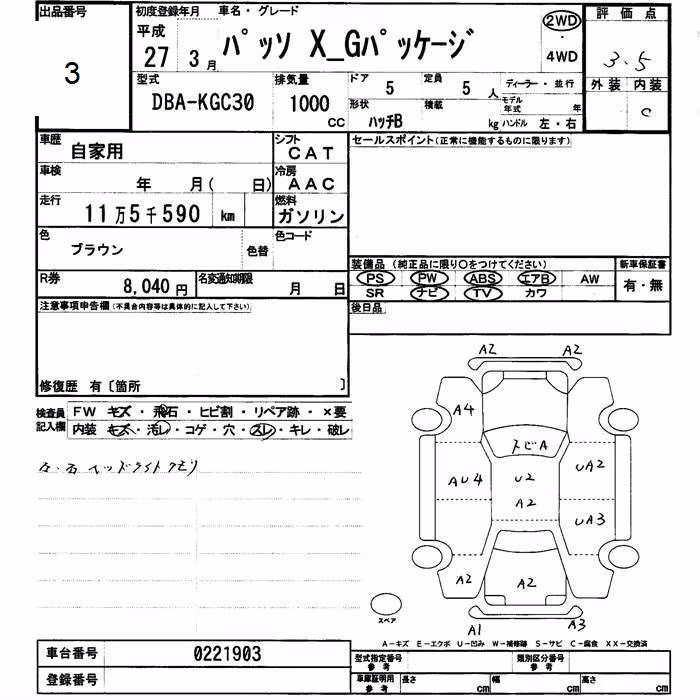 出品番号 初度登録年月 車名・グレード 2WD 評価点
3 平成 27 3月 パッソ X_Gパッケージ 4WD 3.5
型式 排気量 ドア 定員 ディーラー・並行 外装 内装
DBA-KGC30 1000 CC 5 5人 モデル年式 年 C
形状 積載
ハッチB kg ハンドル 左・右
車歴 自家用 シフト CAT セールスポイント(正常に機能するものに限ります)
車検 年 月( 日) 冷房 AAC
走行 11万5千590 km 燃料 ガソリン
色 ブラウン 色替 色コード
装備品 (純正品に限り○をつけてください) 新車保証書
R券 8,040円 名変通知期限 月 日 PS PW ABS エアB AW 有・無
SR ナビ TV カワ
注意事項申告欄(不具合内容等は具体的に記入して下さい) 後日品
修復歴 有〔箇所 〕
検査員記入欄 FW キズ・飛石・ヒビ割・リペア跡・×要
内装 キズ・汚レ・コゲ・穴・スレ・キレ・破レ
左・右 ヘッドライトクモリ
A2 A2
A4
トビA
AU4 U2 UA2
A2 UA3
A2 A2
スペア A1 A3
A-キズ E-エクボ U-凹み W-補修跡 S-サビ C-腐食 XX-交換済
車台番号 0221903 型式指定番号 参考 類別区分番号 参考
登録番号 車庫証明用 参考 長さ cm 幅 cm 高さ cm